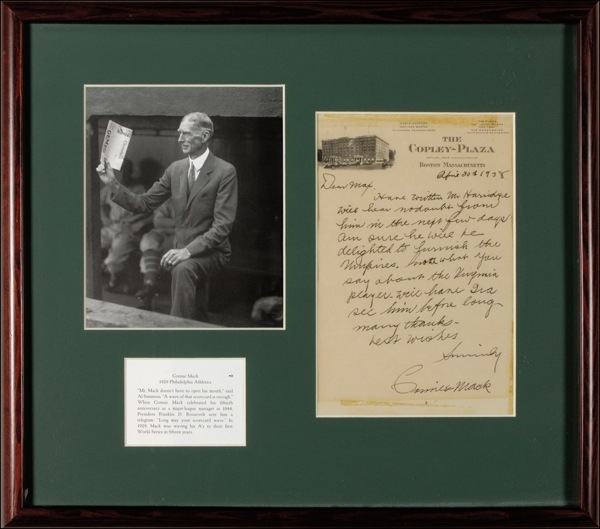 THE
COPLEY-PLAZA
BOSTON MASSACHUSETTS
April 30th 1938
Dear Max
Have written Mr Harridge
will hear no doubt from
him in the next few days
am sure he will be
delighted to furnish the
Umpires. note what you
say about the Virginia
player will have Ira
see him before long
many thanks-
best wishes
Sincerely
Connie Mack
Connie Mack
1929 Philadelphia Athletics
"Mr. Mack doesn't have to open his mouth," said
Al Simmons. "A wave of that scorecard is enough."
When Connie Mack celebrated his fiftieth
anniversary as a major-league manager in 1944,
President Franklin D. Roosevelt sent him a
telegram: "Long may your scorecard wave." In
1929, Mack was waving his A's to their first
World Series in fifteen years.